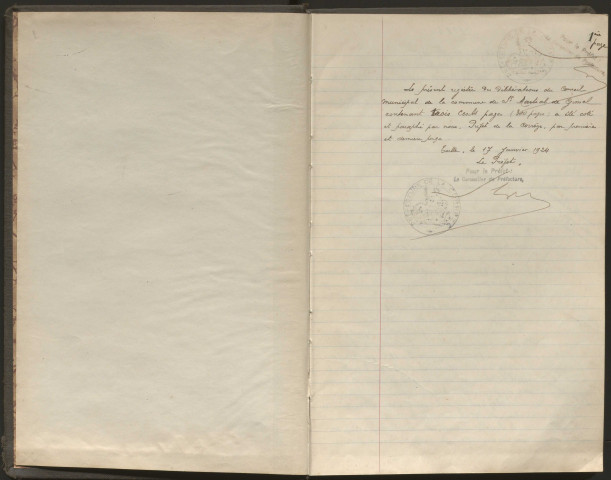 1ère
page
Le présent registre des délibérations du Conseil
Municipal de la commune de St Martial de Gimel
contenant trois cents pages (300 pages) a été coté
et paraphé par nous, Préfet de la Corrèze, par première
et dernière page.
Tulle, le 17 Janvier 1924
Le Préfet,
Pour le Préfet
Le Conseiller de Préfecture,